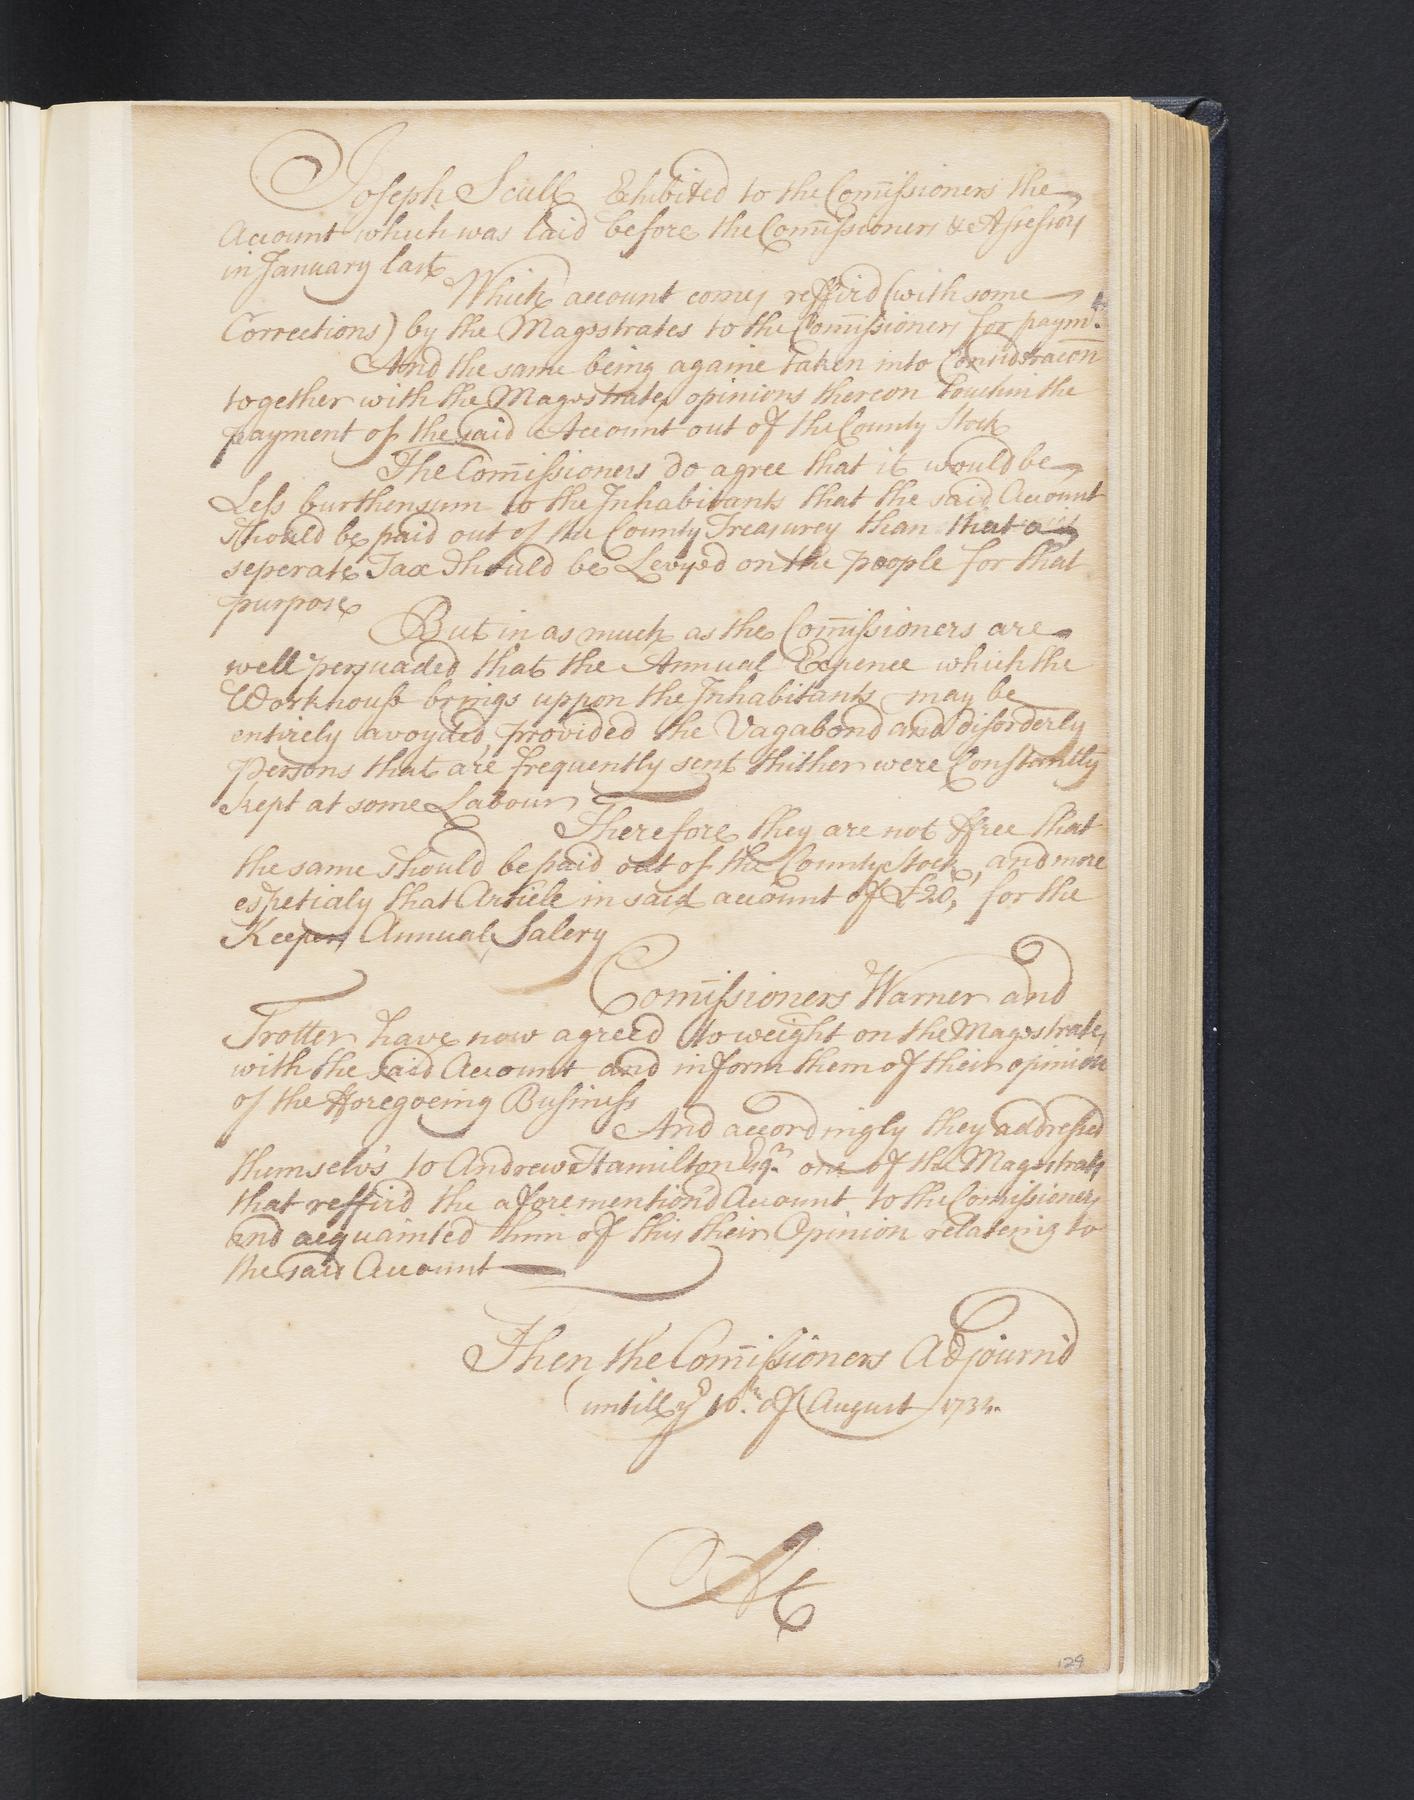 Joseph Scull Exhibited to the Com̄issioners the
Account which was laid before the Com̄issioners & Assessors
in January last
Which account comes reffird (with some
Corrections) by the Magistrates to the Com̄issioners for paymt.
And the same being againe taken into Consideracon̄
together with the Magistrates opinions thereon touchin the
payment of the said Account out of the County Stock
The Com̄issioners do agree that it would be
Less burthensum to the Inhabitants that the said Account
should be paid out of the County Treasurey than that a
seperate Tax should be Levyed on the people for that
purpose
But in as much as the Com̄issioners are
well persuaded that the Annual Expence which the
Workhouse brings uppon the Inhabitants may be
entirely avoyded, provided the Vagabond and disorderly
persons that are frequently sent thither were Constantly
kept at some Labour
Therefore they are not ffree that
the same should be paid out of the County Stock, and more
espetialy that Article in said account of £20, for the
Keepers Annual Salery
Com̄issioners Warner and
Trotter have now agreed to weight on the Magistrates
with the said Account and inform them of their opinion
of the fforegoeing Business
And accordingly they addressed
themselv's to Andrew Hamilton Esqr. one of the Magistrats
that reffird the aforemention'd Account to the Com̄issioners
and acquainted him of this their Opinion relateing to
the said Account
Then the Com̄issioners Adjourn'd
untill ye 10th. of August 1734.
At
129